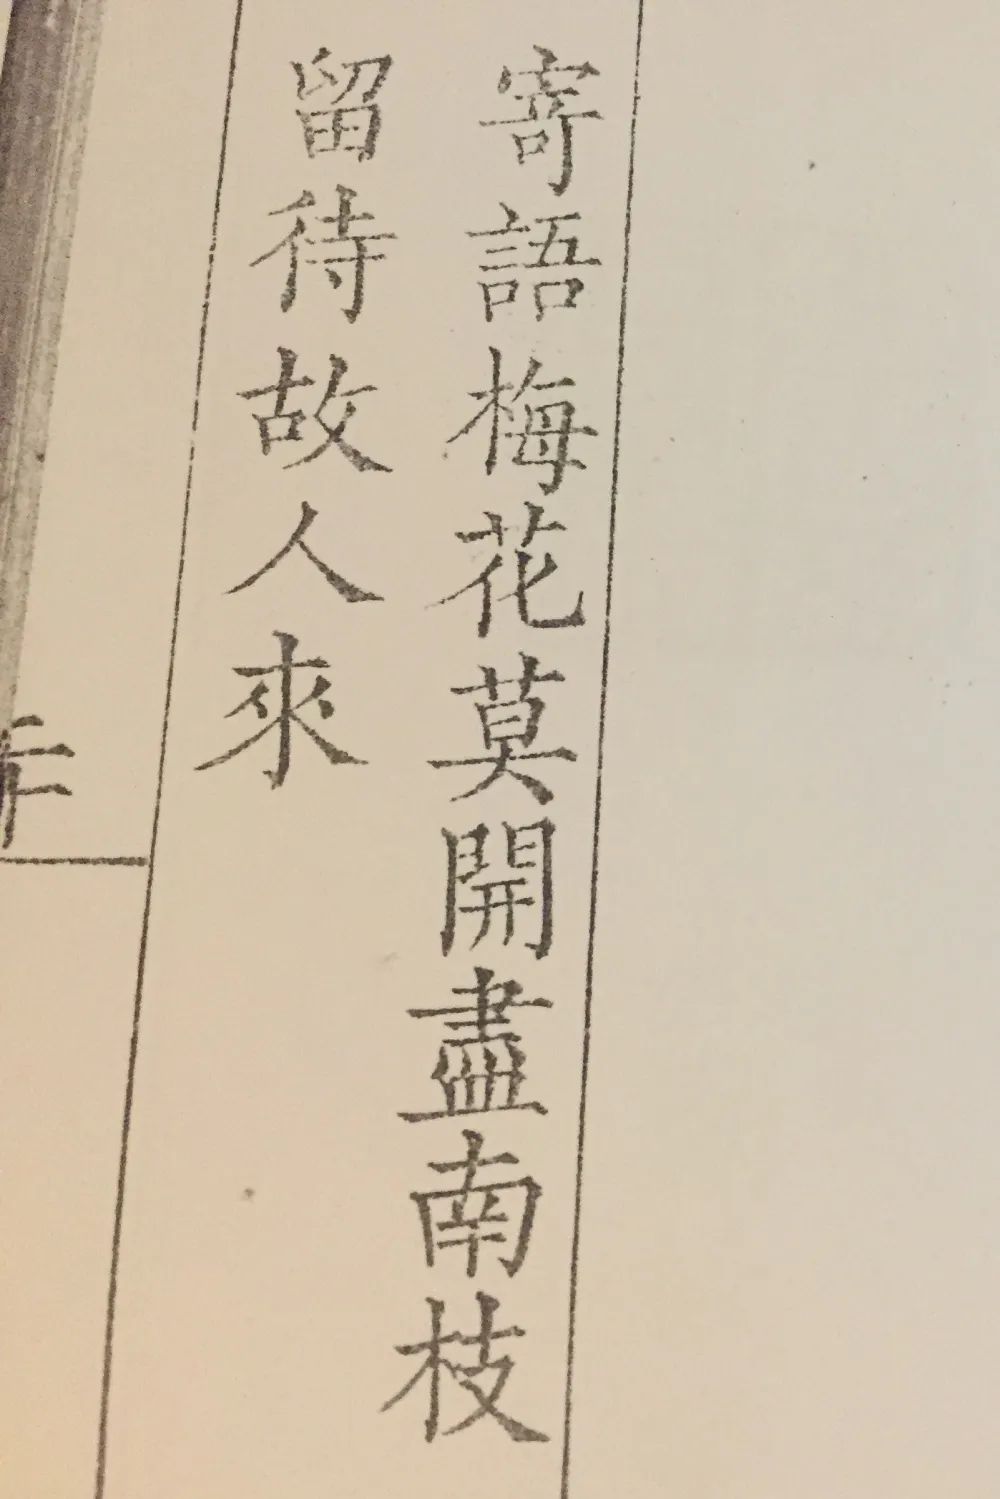 寄語梅花莫開盡南枝
留待故人來